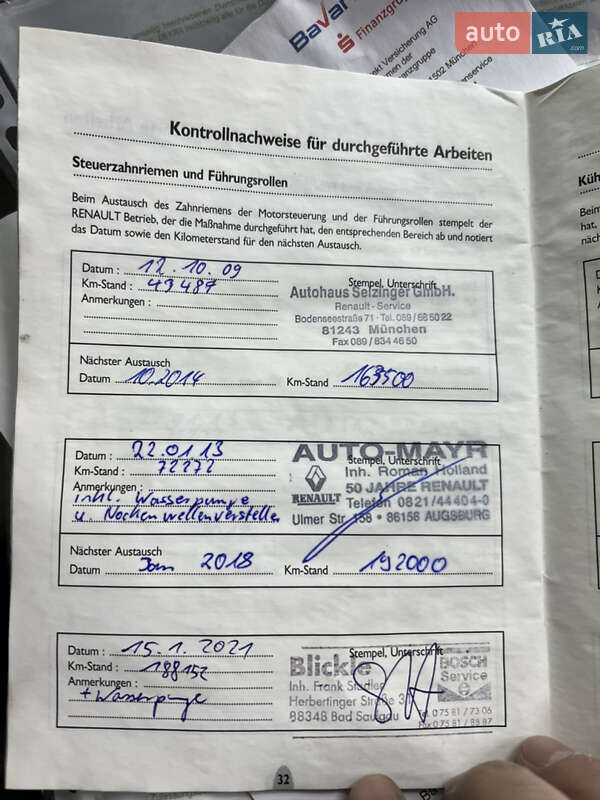 BaVar
Finanzgrup
ekt Versicherung AG
men der
nanzgruppe
502 München
enservice
auto RIA.com
Kontrollnachweise für durchgeführte Arbeiten
Steuerzahnriemen und Führungsrollen
Beim Austausch des Zahnriemens der Motorsteuerung und der Führungsrollen stempelt der
RENAULT Betrieb, der die Maßnahme durchgeführt hat, den entsprechenden Bereich ab und notiert
das Datum sowie den Kilometerstand für den nächsten Austausch.
Datum : 12.10.09
Km-Stand : 43487
Anmerkungen :
Stempel, Unterschrift
Autohaus Selzinger GmbH.
Renault - Service
Bodenseestraße 71 · Tel. 089/885022
81243 München
Fax 089/8344650
Nächster Austausch
Datum 10.2014 Km-Stand 163500
Datum : 22.01.13
Km-Stand : 72272
Anmerkungen :
inkl. Wasserpumpe
u. Nockenwellenversteller
AUTO-MAYR
Stempel, Unterschrift
Inh. Roman Holland
50 JAHRE RENAULT
RENAULT
Telefon 0821/44404-0
Ulmer Str. 158 • 86156 AUGSBURG
Nächster Austausch
Datum Jan 2018 Km-Stand 192000
Datum : 15.1.2021
Km-Stand : 188152
Anmerkungen :
+ Wasserpumpe
Stempel, Unterschrift
Blickle
BOSCH
Service
Inh. Frank Stadler
Herbertinger Straße
88348 Bad Saulgau
Tel. 0 75 81 / 73 06
Fax 0 75 81 / 85 87
32
Küh
Beim
hat,
näch